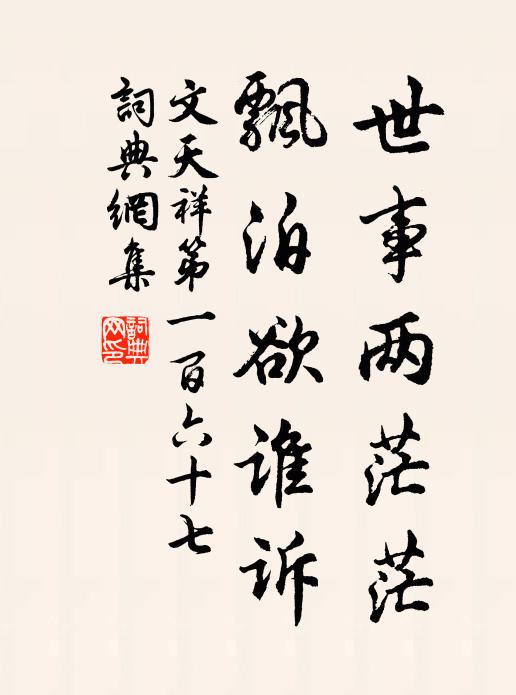 世事两茫茫
飘泊欲谁诉
文天祥第一百六十七
詞典網集
詞典網印